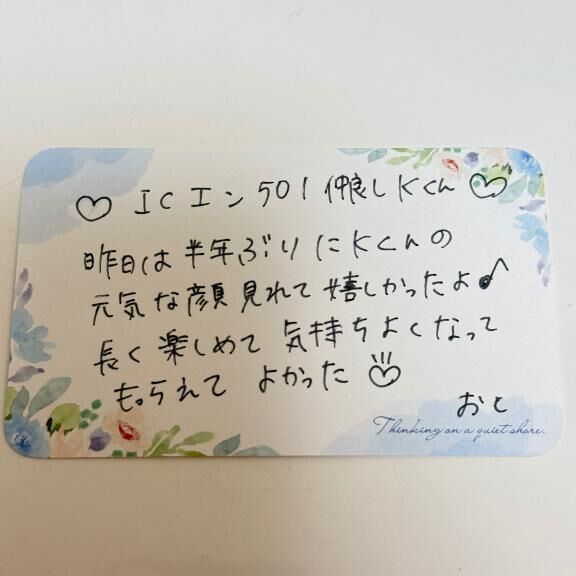 ♡ ICエン501仲良しKくん ♡
昨日は半年ぶりにKくんの
元気な顔見れて嬉しかったよ♪
長く楽しめて気持ちよくなって
もらえてよかった♡
おと
Thinking on a quiet shore.